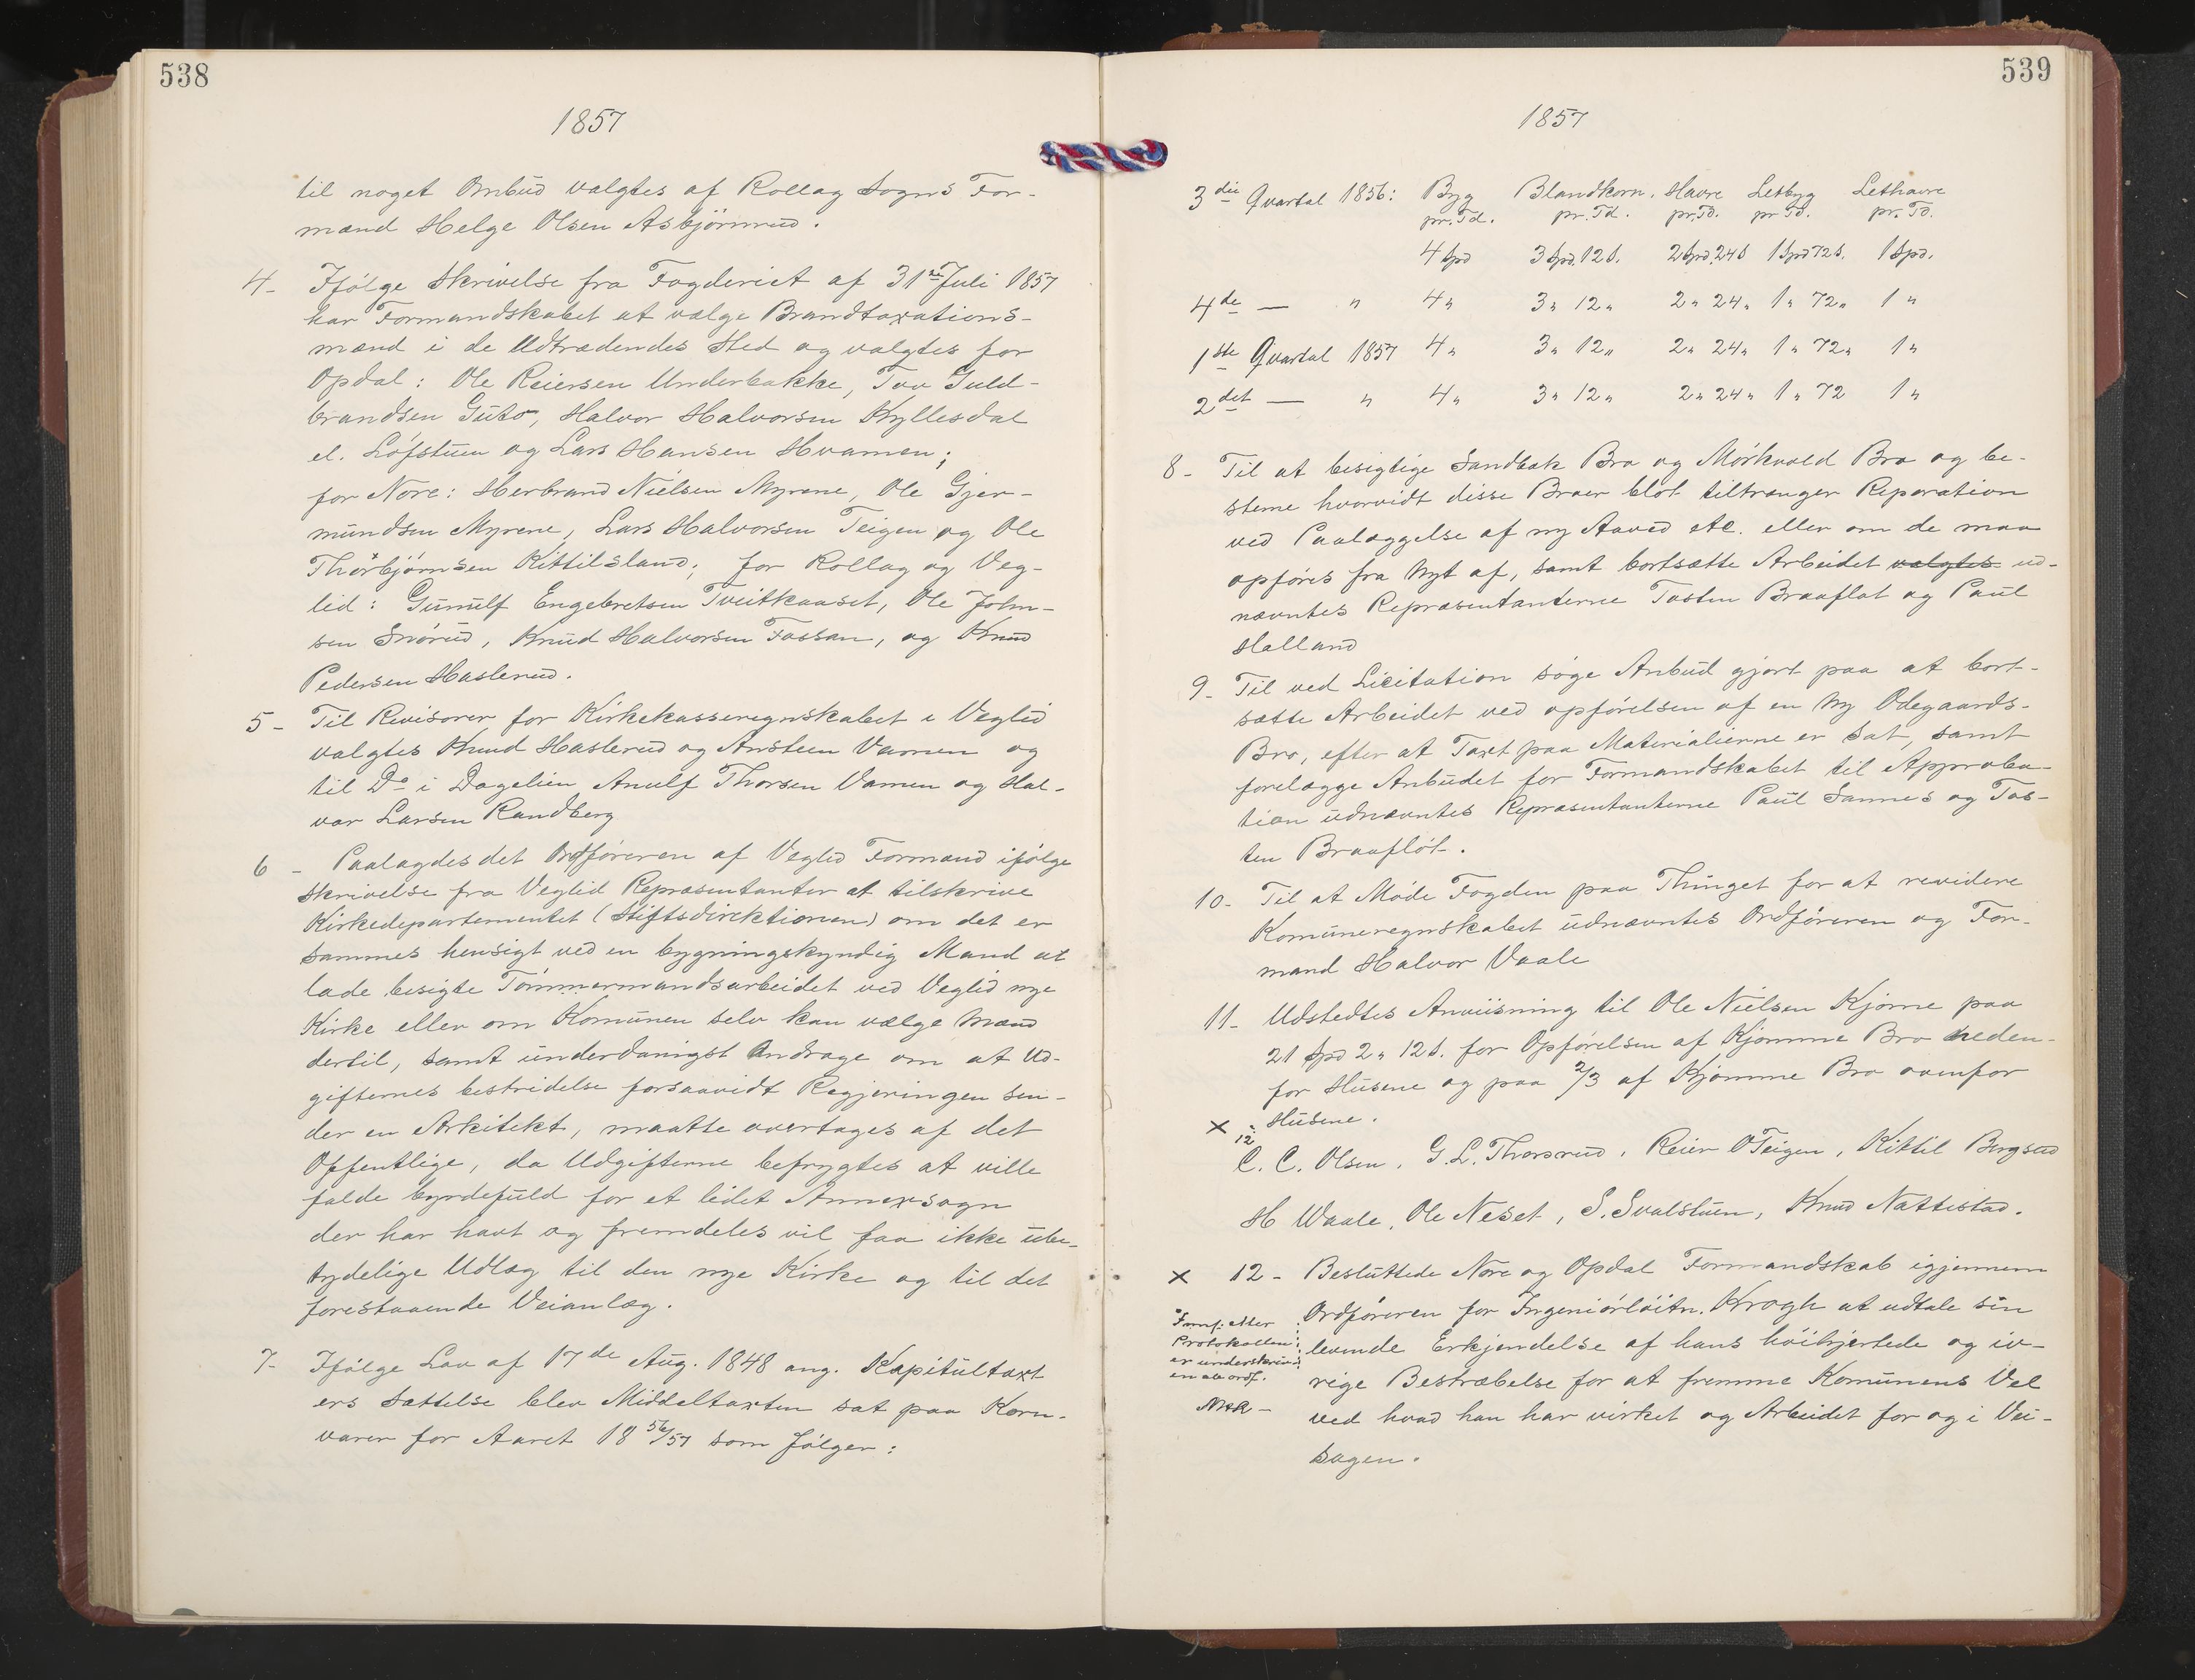 538
1857
til noget Ombud valgtes af Rollag Sogns For-
mænd Helge Olsen Asbjörnrud.
4- Ifölge Skrivelse fra Fogderiet af 31te Juli 1857
har Formandskabet at vælge Brandtaxations-
mænd i de Udtrædendes Sted og valgtes for
Opdal: Ole Reiersen Underbakke, Tov Guld-
brandsen Guto, Halvor Halvorsen Kyllesdal
el. Löfstuen og Lars Hansen Hvamen;
for Nore: Herbrand Nielsen Myrene, Ole Gjer-
mundsen Myrene, Lars Halvorsen Teigen og Ole
Thorbjörnsen Kittilsland; for Rollag og Veg-
lid: Gunulf Engebretsen Tveitkaaset, Ole John-
sen Snörud, Knud Halvorsen Fossan, og Knud
Pedersen Haslerud.
5- Til Revisorer for Kirkekasseregnskabet i Veglid
valgtes Knud Haslerud og Ansteen Vamen og
til Do i Dagelien Anulf Thorsen Vamen og Hal-
vor Larsen Randberg
6 - Paalagdes det Ordföreren af Veglid Formand ifölge
skrivelse fra Veglid Repræsentanter at tilskrive
Kirkedepartementet (Stiftsdirektionen) om det er
sammes hensigt ved en bygningskyndig Mand at
lade besigte Tömmermandsarbeidet ved Veglid nye
Kirke eller om Komunen selv kan vælge Mænd
dertil, samt underdanigst Andrage om at Ud-
gifternes bestridelse forsaavidt Regjeringen sen-
der en Arkitekt, maatte overtages af det
Offentlige, da Udgifterne befrygtes at ville
falde byrdefuld for et lidet Annexsogn
der har havt og fremdeles vil faa ikke ube-
tydelige Udlæg til den nye Kirke og til det
forestaaende Veianlæg.
7- Ifölge Lov af 17de Aug. 1848 ang. Kapitultaxt
ers Sættelse blev Middeltaxten sat paa Korn-
varer for Aaret 1856/57 som fölger:
539
1857
3die Qvartal 1856: Byg Blandkorn. Havre Letbyg Lethavre
pr. Td. pr. Td. pr. Td. pr Td. pr. Td.
4 Spd 3 Spd. 12 s. 2 Spd. 24 s 1 Spd 72 s. 1 Spd.
4de — " 4 " 3 " 12 " 2 " 24 " 1 " 72 " 1 "
1ste Qvartal 1857 4 " 3 " 12 " 2 " 24 " 1 " 72 " 1 "
2det — " 4 " 3 " 12 " 2 " 24 " 1 " 72 1 "
8- Til at besigtige Sandbak Bro og Mörkvold Bro og be-
steme hvorvidt disse Broer blot tiltrænger Reparation
ved Paalæggelse af ny Aaved etc. eller om de maa
opföres fra Nyt af, samt bortsætte Arbeidet valgtes ud-
nævntes Repræsentanterne Tosten Braaflot og Paul
Halland
9- Til ved Licitation söge Anbud gjort paa at bort-
sætte Arbeidet ved opförelsen af en Ny Ödegaards-
Bro, efter at Taxt paa Materialierne er sat, samt
forelægge Anbudet for Formandskabet til Approba-
tion udnævntes Repræsentanterne Paul Sannes og Tos-
ten Braaflöt.
10- Til at Möde Fogden paa Thinget for at revidere
Komuneregnskabet udnævntes Ordföreren og For-
mand Halvor Vaale
11- Udstedtes Anviisning til Ole Nielsen Kjörne paa
21 Spd 2 " 12 s. for Opförelsen af Kjömme Bro neden-
for Husene og paa 2/3 af Kjömme Bro ovenfor
Husene.
× 12
C. C. Olsen, G. L. Thorsrud, Reier O Teigen, Kittil Bergsed
H Waale, Ole Neset, S. Svalstuen, Knud Nattestad.
× 12- Besluttede Nore og Opdal Formandskab igjennem
Ordföreren for Ingeniörlöitn. Krogh at udtale sin
levende Erkjendelse af hans höihjertede og iv-
rige Bestræbelse for at fremme Komunens Vel
ved hvad han har virket og Arbeidet for og i Vei-
sagen.
efter
Protokollen
er underskrev-
en av ordf.